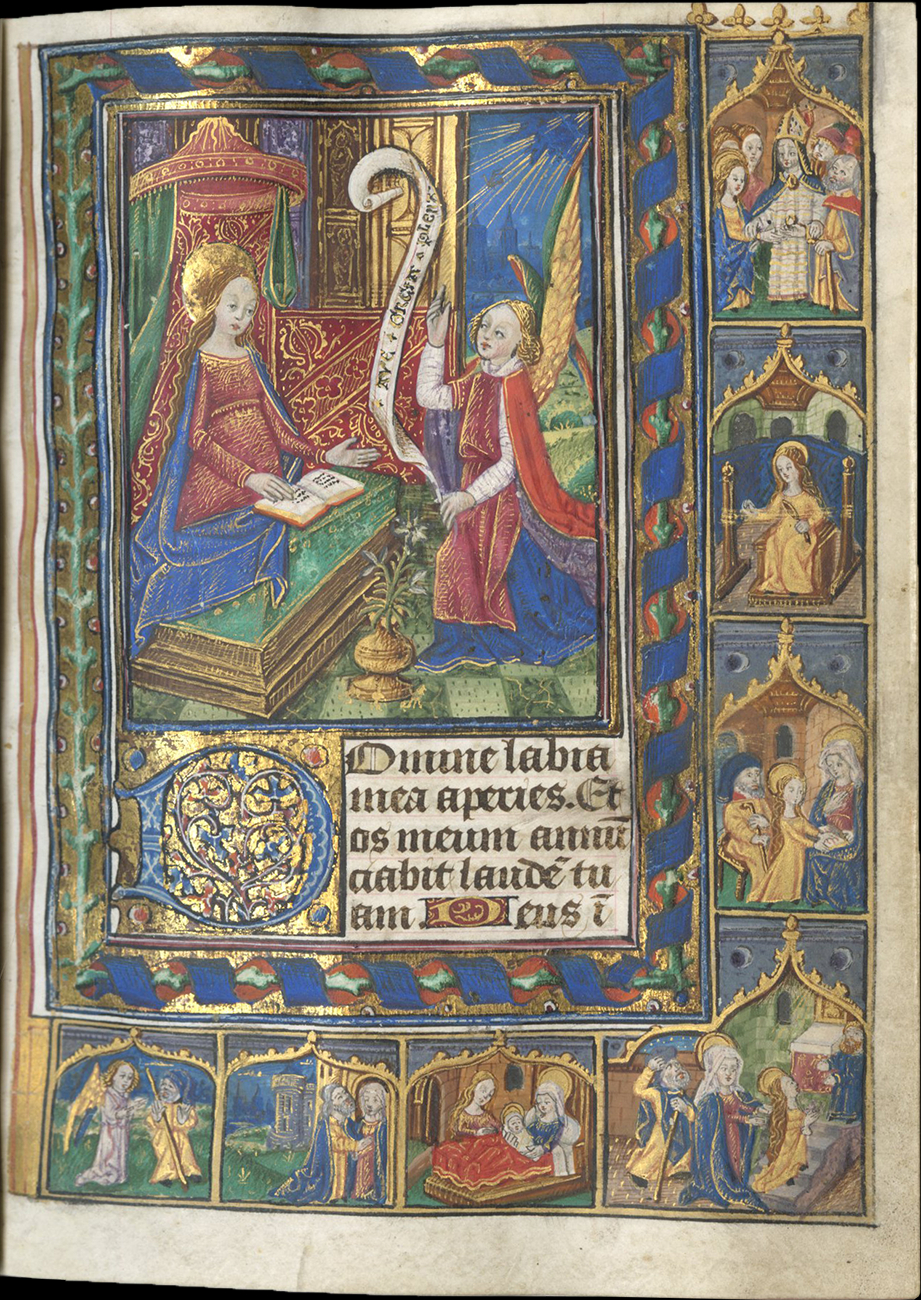 aue + gracia + plena
Domine labia
mea aperies. Et
os meum annu̅
ciabit laude̅ tu
am Deus i̅